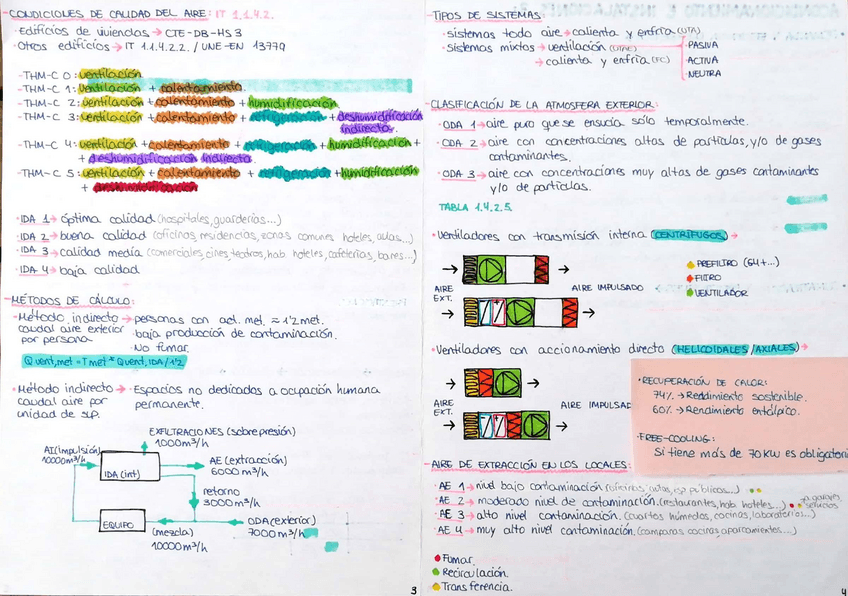 -CONDICIONES DE CALIDAD DEL AIRE: IT 1.1.4.2.
·Edificios de viviendas → CTE-DB-HS3
·Otros edificios → IT 1.1.4.2.2. / UNE-EN 13779
-THM-C 0: ventilación
-THM-C 1: ventilación + calentamiento.
-THM-C 2: ventilación + calentamiento + humidificación
-THM-C 3: ventilación + calentamiento + refrigeración + deshumidificación
indirecta.
-THM-C 4: ventilación + calentamiento + refrigeración + humidificación +
+ deshumidificación indirecta.
-THM-C 5: ventilación + calentamiento + refrigeración + humidificación
+ deshumidificación
·IDA 1 → óptima calidad (hospitales, guarderías...)
·IDA 2 → buena calidad (oficinas, residencias, zonas comunes hoteles, aulas...)
·IDA 3 → calidad media (comerciales, cines, teatros, hab. hoteles, cafeterías, bares...)
·IDA 4 → baja calidad
-MÉTODOS DE CÁLCULO:
·Método indirecto → personas con act. met. ≈ 1'2 met.
caudal aire exterior ·baja producción de contaminación.
por persona ·No fumar.
Qvent,met = Tmet * Qvent, IDA / 1'2
·Método indirecto → Espacios no dedicados a ocupación humana
caudal aire por permanente.
unidad de sup.
EXFILTRACIONES (sobrepresión)
1000 m³/h
AI (impulsión)
10000 m³/h
IDA (int)
AE (extracción)
6000 m³/h
retorno
3000 m³/h
EQUIPO
ODA (exterior)
7000 m³/h
(mezcla)
10000 m³/h
3
-TIPOS DE SISTEMAS:
·sistemas todo aire → calienta y enfría (UTA)
·sistemas mixtos → ventilación (UTAE)
→ calienta y enfría (FC)
·PASIVA
·ACTIVA
·NEUTRA
-CLASIFICACIÓN DE LA ATMOSFERA EXTERIOR:
·ODA 1 → aire puro que se ensucia sólo temporalmente.
·ODA 2 → aire con concentraciones altas de partículas, y/o de gases
contaminantes.
·ODA 3 → aire con concentraciones muy altas de gases contaminantes
y/o de partículas.
TABLA 1.4.2.5.
·Ventiladores con transmisión interna (CENTRÍFUGOS) →
AIRE
EXT.
AIRE IMPULSADO
PREFILTRO (G4+...)
FILTRO
VENTILADOR
·Ventiladores con accionamiento directo (HELICOIDALES/AXIALES) →
AIRE
EXT.
AIRE IMPULSAD
·RECUPERACIÓN DE CALOR:
74% → Rendimiento sostenible.
60% → Rendimiento entálpico.
·FREE-COOLING:
Si tiene más de 70 KW es obligatori
-AIRE DE EXTRACCIÓN EN LOS LOCALES:
·AE 1 → nivel bajo contaminación (oficinas, aulas, esp. públicos...)
·AE 2 → moderado nivel de contaminación. (restaurantes, hab. hoteles...)
→ a garajes,
servicios
·AE 3 → alto nivel contaminación. (cuartos húmedos, cocinas, laboratorios...)
·AE 4 → muy alto nivel contaminación. (campanas cocinas, aparcamientos...)
Fumar.
Recirculación.
Transferencia.
4